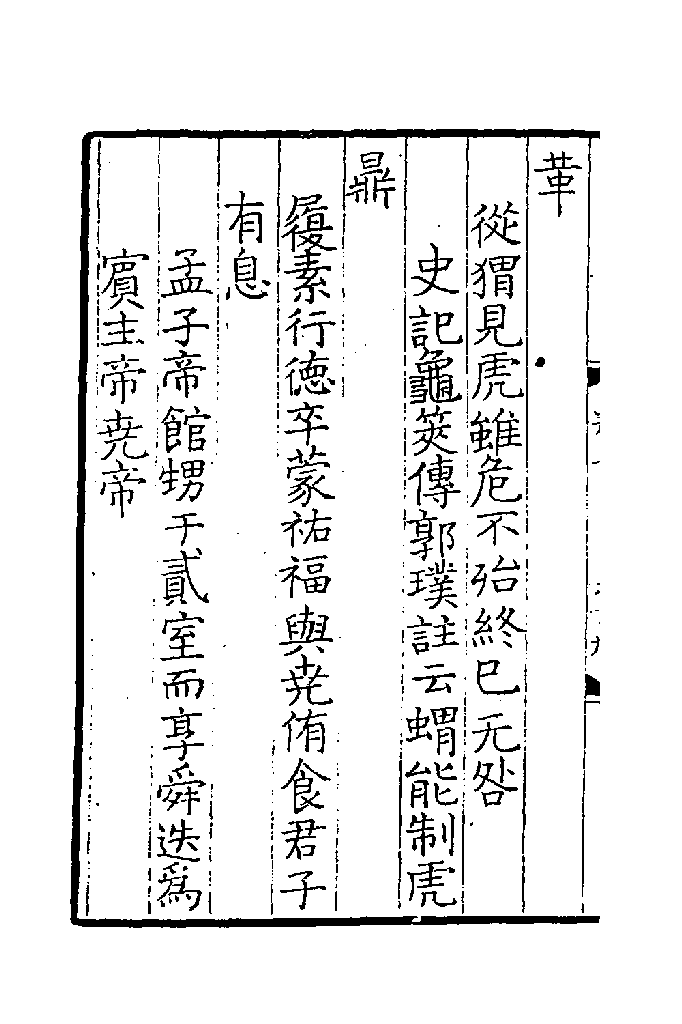 革
從猬見虎雖危不殆終已无咎
史記龜筴傳郭璞註云蝟能制虎
鼎
履素行德卒蒙祐福與堯侑食君子
有息
孟子帝館甥于貳室而享舜迭爲
賓主帝堯帝